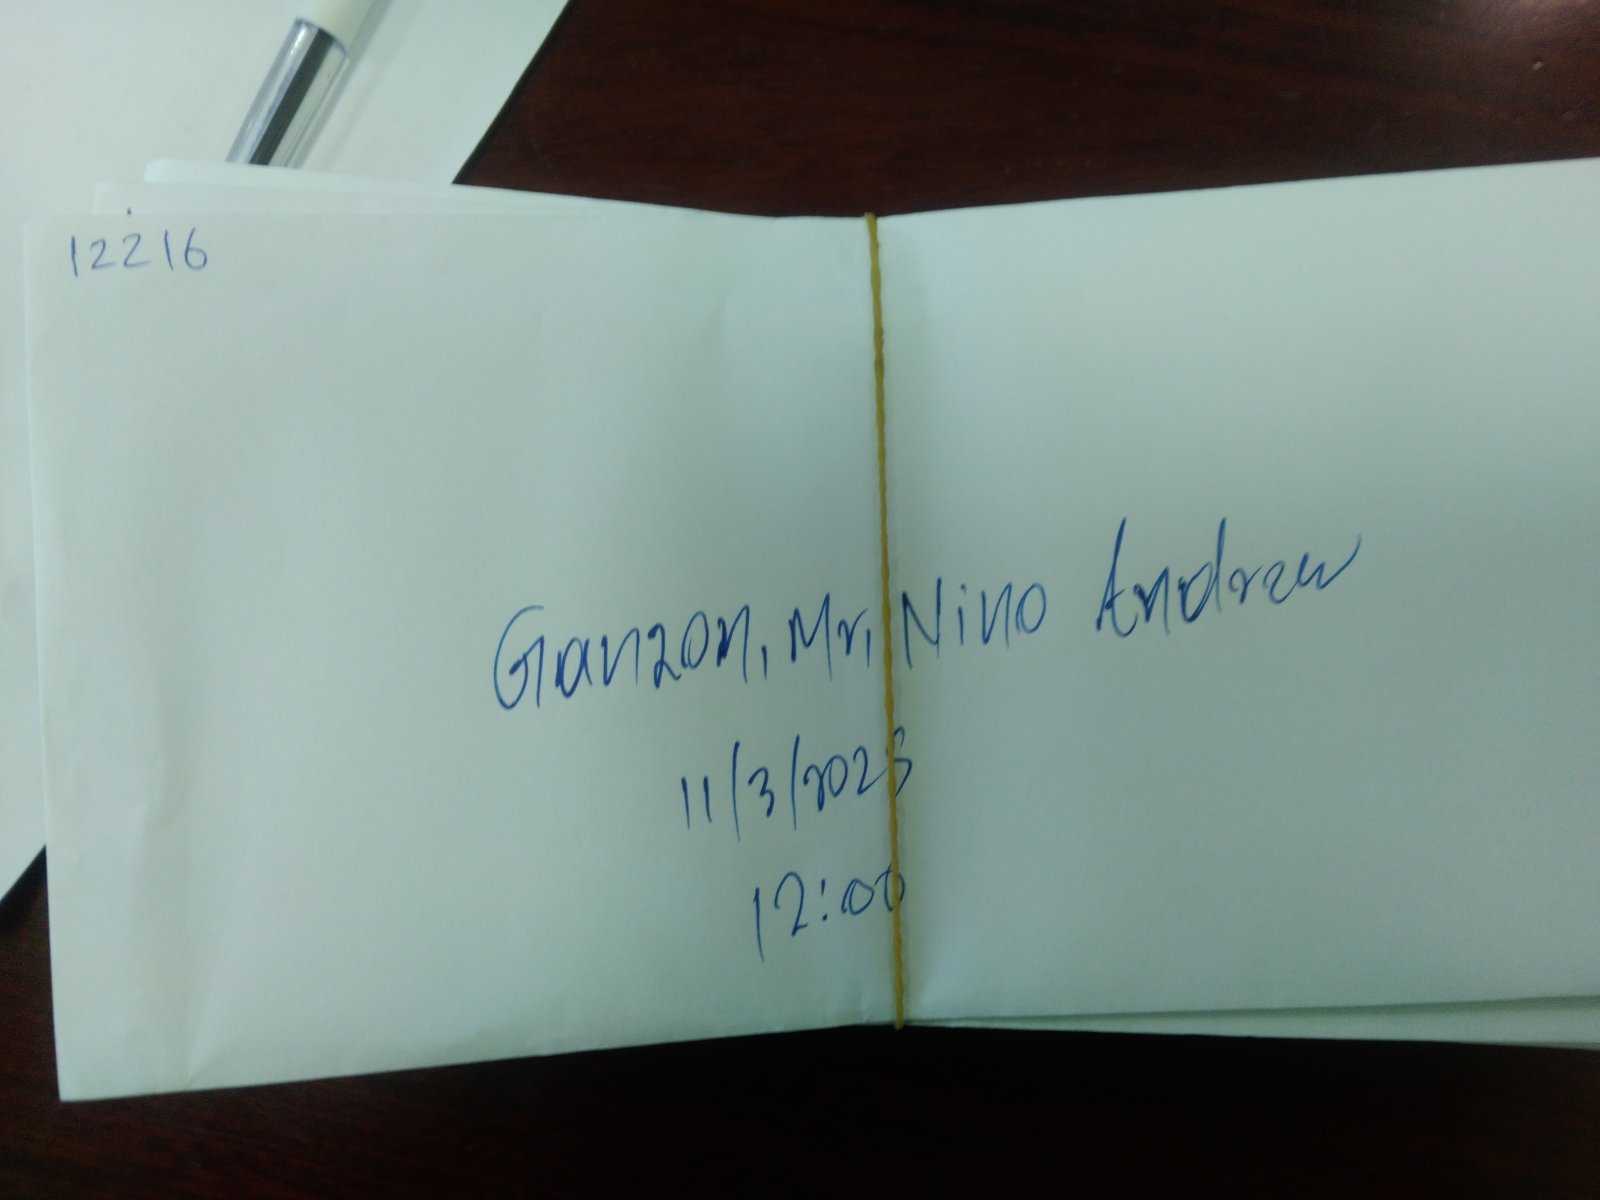 12216
Ganzon, Mr, Nino Andrew
11/3/2023
12:00